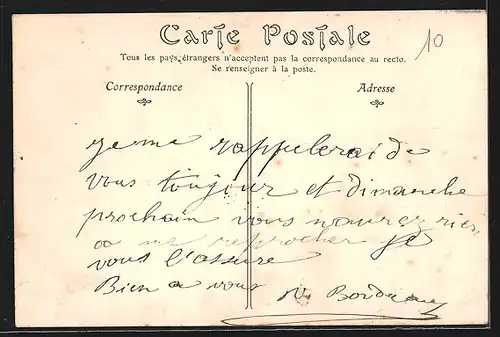 Carte Postale
10
Tous les pays étrangers n'acceptent pas la correspondance au recto.
Se renseigner à la poste.
Correspondance
Adresse
je me rappelerai de
vous toujour et dimanche
prochain vous n'aurez rien
a me reprocher je
vous l'assure
Bien a vous